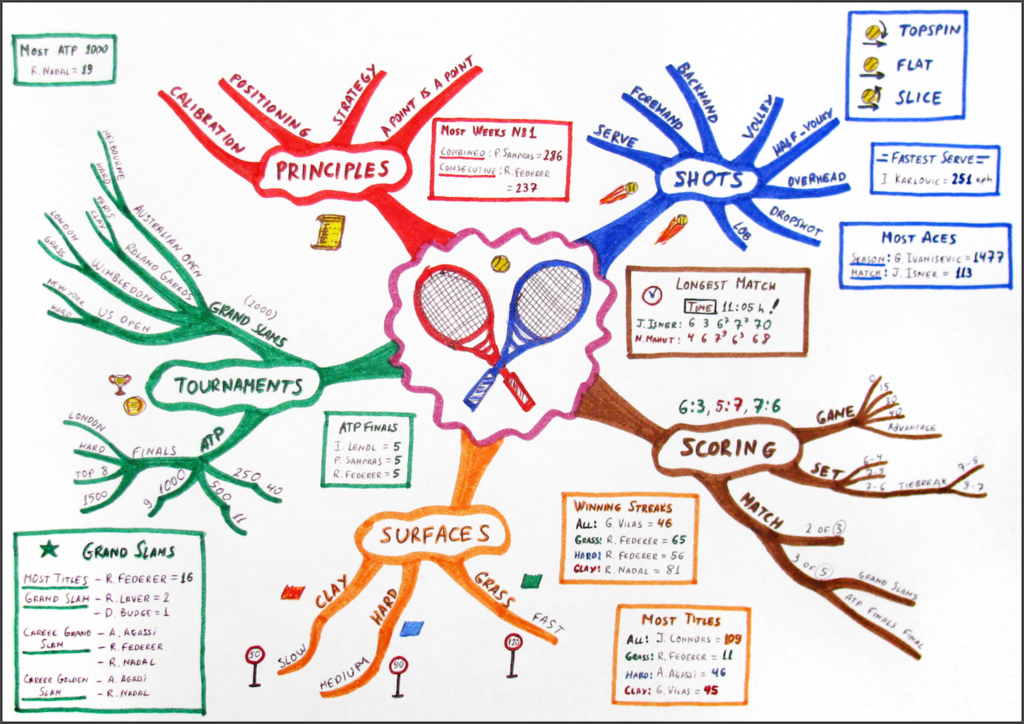 MOST ATP 1000
R. NADAL = 19
CALIBRATION
POSITIONING
STRATEGY
A POINT IS A POINT
PRINCIPLES
MOST WEEKS №1
COMBINED: P. SAMPRAS = 286
CONSECUTIVE: R. FEDERER
= 237
SERVE
FOREHAND
BACKHAND
VOLLEY
HALF-VOLLEY
OVERHEAD
DROPSHOT
LOB
SHOTS
TOPSPIN
FLAT
SLICE
= FASTEST SERVE =
I. KARLOVIC = 251 kph
MOST ACES
SEASON: G. IVANISEVIC = 1477
MATCH: J. ISNER = 113
LONGEST MATCH
TIME 11:05 h!
J. ISNER: 6 3 6⁷ 7⁷ 70
N. MAHUT: 4 6 7⁹ 6³ 68
MELBOURNE
HARD
AUSTRALIAN OPEN
PARIS
CLAY
ROLAND GARROS
LONDON
GRASS
WIMBLEDON
NEW YORK
HARD
US OPEN
(2000)
GRAND SLAMS
TOURNAMENTS
ATP
FINALS
LONDON
HARD
TOP 8
1500
9 1000
500 11
250 40
ATP FINALS
I. LENDL = 5
P. SAMPRAS = 5
R. FEDERER = 5
6:3, 5:7, 7:6
SCORING
GAME
0
15
30
40
ADVANTAGE
SET
6-4
7-5
7-6 TIEBREAK
7-5
9-7
MATCH
2 OF 3
3 OF 5
GRAND SLAMS
ATP FINALS FINAL
SURFACES
CLAY
SLOW
50
HARD
MEDIUM
90
GRASS
FAST
120
WINNING STREAKS
ALL: G. VILAS = 46
GRASS: R. FEDERER = 65
HARD: R. FEDERER = 56
CLAY: R. NADAL = 81
MOST TITLES
ALL: J. CONNORS = 109
GRASS: R. FEDERER = 11
HARD: A. AGASSI = 46
CLAY: G. VILAS = 45
GRAND SLAMS
MOST TITLES - R. FEDERER = 16
GRAND SLAM - R. LAVER = 2
- D. BUDGE = 1
CAREER GRAND SLAM - A. AGASSI
- R. FEDERER
- R. NADAL
CAREER GOLDEN SLAM - A. AGASSI
- R. NADAL